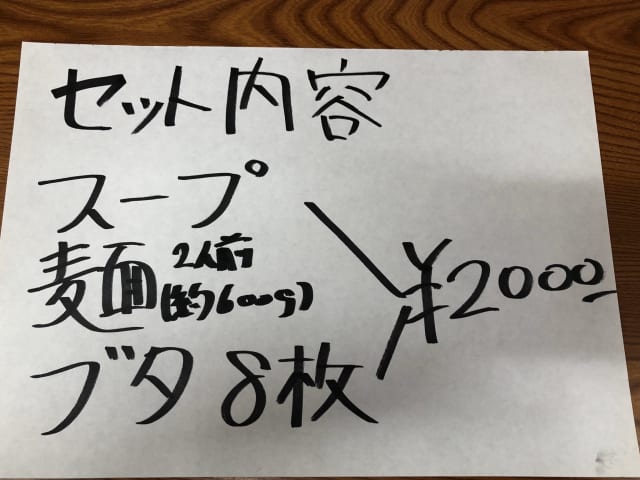 セット内容
スープ
麺 2人前
(約600g)
ブタ 8枚
¥2000